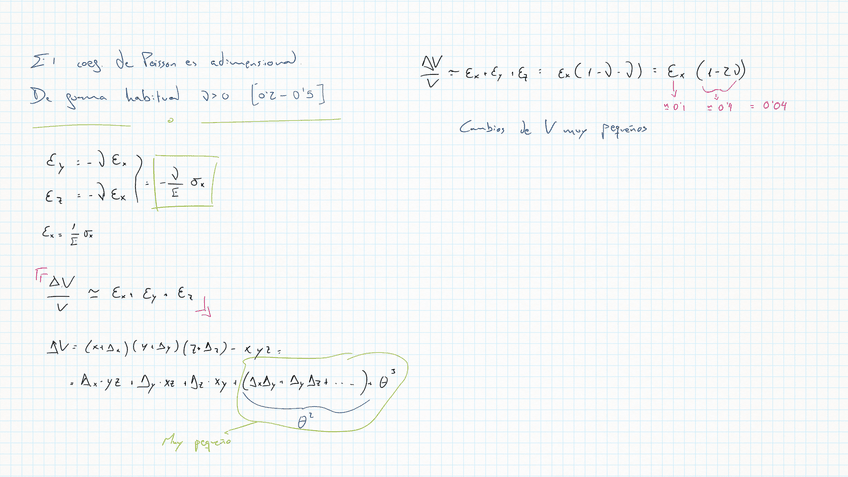 El coeg de Poisson es adimensional
De gorma habitual ν>0 [0'2-0'5]
εy = -ν εx
εz = -ν εx
= -ν/E σx
εx = 1/E σx
ΔV/V ≃ εx + εy + εz
ΔV = (x+Δx)(y+Δy)(z+Δz) - xyz =
= Δx·yz + Δy·xz + Δz·xy + (ΔxΔy + ΔyΔz + ...) + θ³
θ²
Muy pequeño
ΔV/V ≃ εx + εy + εz = εx(1-ν-ν) = εx (1-2ν)
≈ 0'1 ≈ 0'4 = 0'04
Cambios de V muy pequeños